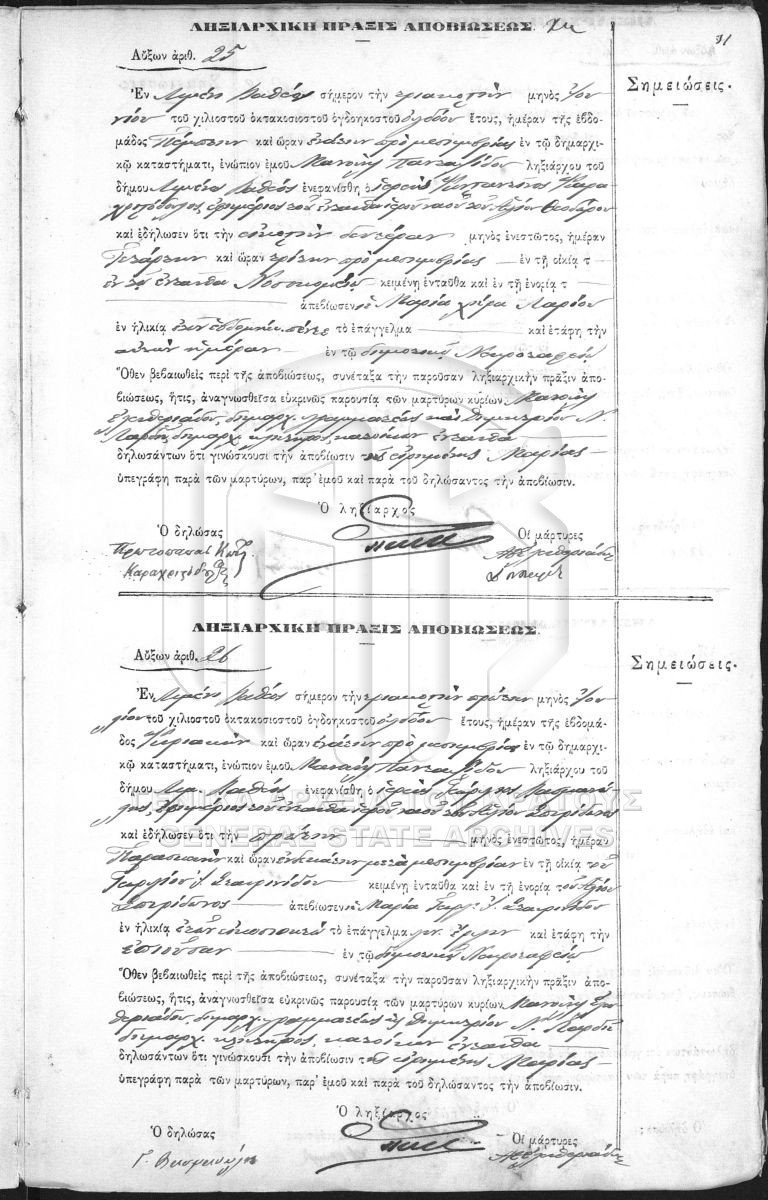 ΛΗΞΙΑΡΧΙΚΗ ΠΡΑΞΙΣ ΑΠΟΒΙΩΣΕΩΣ.
31
Αὔξων ἀριθ. 25
Σημειώσεις.
Ἐν Λιμένι Βαθέος σήμερον τὴν τριακοστὴν μηνὸς Ἰου
νίου τοῦ χιλιοστοῦ ὀκτακοσιοστοῦ ὀγδοηκοστοῦ ὀγδόου ἔτους, ἡμέραν τῆς ἑβδο-
μάδος Πέμπτην καὶ ὥραν ἐνάτην πρὸ μεσημβρίας ἐν τῷ δημαρχι-
κῷ καταστήματι, ἐνώπιον ἐμοῦ Μανουὴλ ληξιάρχου τοῦ
δήμου Λιμένος Βαθέος ἐνεφανίσθη ὁ ἱερεὺς Κωνσταντῖνος Καρα
χριστόδουλος, ἐφημέριος τοῦ ἐνταῦθα ἱεροῦ ναοῦ τοῦ Ἁγίου Θεοδώρου
καὶ ἐδήλωσεν ὅτι τὴν εἰκοστὴν δευτέραν μηνὸς ἐνεστῶτος, ἡμέραν
Τετάρτην καὶ ὥραν τρίτην πρὸ μεσημβρίας ἐν τῇ οἰκίᾳ τ
ἐν τῷ ἐνταῦθα Νοσοκομείῳ κειμένῃ ἐνταῦθα καὶ ἐν τῇ ἐνορίᾳ τ
ἀπεβίωσεν ἡ Μαρία χήρα
ἐν ἡλικίᾳ ἐτῶν ἑβδομήκ. πέντε τὸ ἐπάγγελμα καὶ ἐτάφη τὴν
αὐτὴν ἡμέραν ἐν τῷ δημοτικῷ Νεκροταφείῳ
Ὅθεν βεβαιωθεὶς περὶ τῆς ἀποβιώσεως, συνέταξα τὴν παροῦσαν ληξιαρχικὴν πρᾶξιν ἀπο-
βιώσεως, ἥτις, ἀναγνωσθεῖσα εὐκρινῶς παρουσίᾳ τῶν μαρτύρων κυρίων Μανουὴλ
Ἐλευθεριάδου, δημαρχ. γραμματέως καὶ Δημητρίου Ν.
δημαρχ. κλητῆρος, κατοίκων ἐνταῦθα
δηλωσάντων ὅτι γινώσκουσι τὴν ἀποβίωσιν τῆς εἰρημένης Μαρίας
ὑπεγράφη παρὰ τῶν μαρτύρων, παρ' ἐμοῦ καὶ παρὰ τοῦ δηλώσαντος τὴν ἀποβίωσιν.
Ὁ ληξίαρχος
Ὁ δηλώσας
Οἱ μάρτυρες
Πρωτοπαπᾶς
ΛΗΞΙΑΡΧΙΚΗ ΠΡΑΞΙΣ ΑΠΟΒΙΩΣΕΩΣ.
Αὔξων ἀριθ. 26
Σημειώσεις.
Ἐν Λιμένι Βαθέος σήμερον τὴν τριακοστὴν πρώτην μηνὸς Ἰου
λίου τοῦ χιλιοστοῦ ὀκτακοσιοστοῦ ὀγδοηκοστοῦ ὀγδόου ἔτους, ἡμέραν τῆς ἑβδομά-
δος Κυριακὴν καὶ ὥραν ἐνάτην πρὸ μεσημβρίας ἐν τῷ δημαρχι-
κῷ καταστήματι, ἐνώπιον ἐμοῦ Μανουὴλ ληξιάρχου τοῦ
δήμου Λιμ. Βαθέος ἐνεφανίσθη ὁ ἱερεὺς Γεώργιος
ἐφημέριος τοῦ ἐνταῦθα ἱεροῦ ναοῦ τοῦ Ἁγίου Σπυρίδωνος
ΓΕΝΙΚΑ ΑΡΧΕΙΑ ΤΟΥ ΚΡΑΤΟΥΣ
GENERAL STATE ARCHIVES
καὶ ἐδήλωσεν ὅτι τὴν πρώτην μηνὸς ἐνεστῶτος, ἡμέραν
Παρασκευὴν καὶ ὥραν ἑνδεκάτην μετὰ μεσημβρίαν ἐν τῇ οἰκίᾳ τοῦ
Γεωργίου Ι. Σταματιάδου κειμένῃ ἐνταῦθα καὶ ἐν τῇ ἐνορίᾳ τοῦ Ἁγίου
Σπυρίδωνος ἀπεβίωσεν ἡ Μαρία Γεωργ. Ι.
ἐν ἡλικίᾳ ἐτῶν τὸ ἐπάγγελμα καὶ ἐτάφη τὴν
ἐπιοῦσαν ἐν τῷ δημοτικῷ Νεκροταφείῳ
Ὅθεν βεβαιωθεὶς περὶ τῆς ἀποβιώσεως, συνέταξα τὴν παροῦσαν ληξιαρχικὴν πρᾶξιν ἀπο-
βιώσεως, ἥτις, ἀναγνωσθεῖσα εὐκρινῶς παρουσίᾳ τῶν μαρτύρων κυρίων Μανουὴλ Ἐλευ
θεριάδου, δημαρχ. γραμματέως καὶ Δημητρίου Ν.
δημαρχ. κλητῆρος, κατοίκων ἐνταῦθα
δηλωσάντων ὅτι γινώσκουσι τὴν ἀποβίωσιν τῆς εἰρημένης Μαρίας
ὑπεγράφη παρὰ τῶν μαρτύρων, παρ' ἐμοῦ καὶ παρὰ τοῦ δηλώσαντος τὴν ἀποβίωσιν.
Ὁ ληξίαρχος
Ὁ δηλώσας
Οἱ μάρτυρες